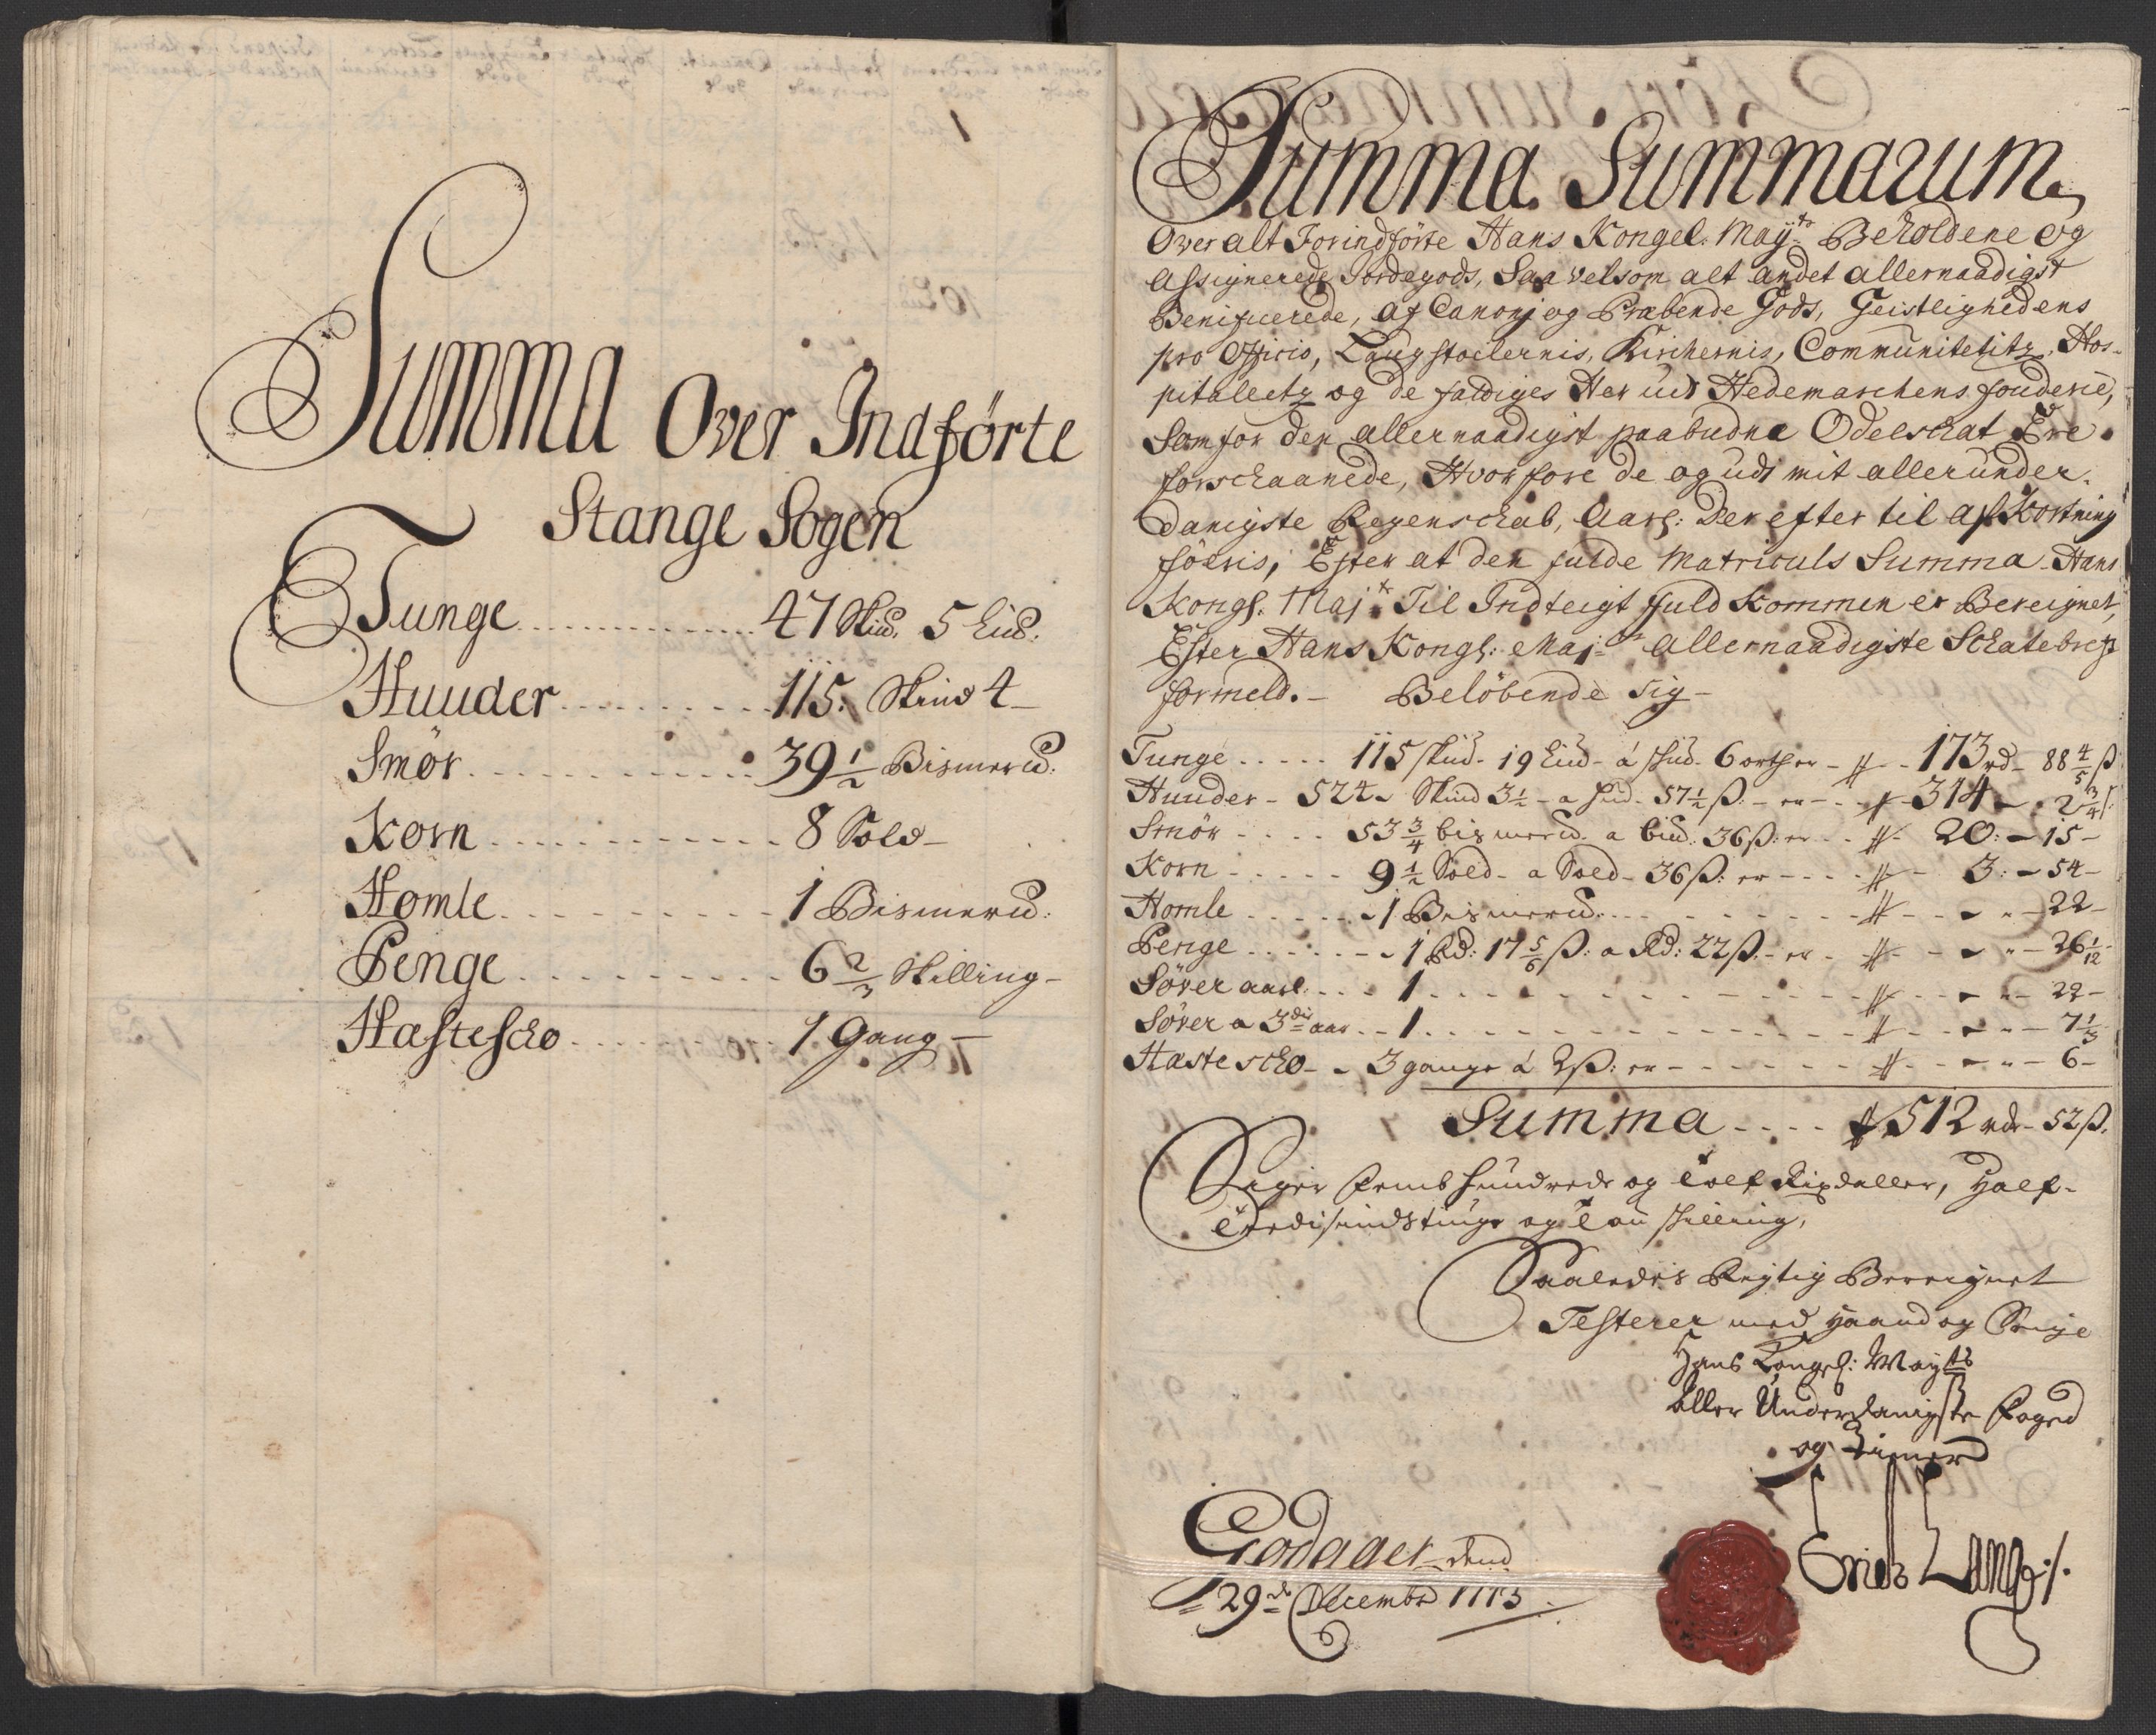 Summa Over Indførte
Stange Sogen
Tunge 47 Skud. 5 Lud.
Huuder 115. Skind 4
Smör 39 1/2 Bismerud.
Korn 8 Sold
Homle 1 Bismerud:
Penge 6 2/3 Skilling
Hastescho 1 Gang
Summa Summarum
Over alt Forindförte Hans Kongel. Mayts Beholdene og
Assignerede Jordegods, Saavelsom alt andet allernaadigst
Benificerede, af Canonj og Præbende Gods, Geistlighedens
pro Officio, Laugstoelernis, Kirchernis, Communitetitz, Hos-
pitaletz og de fattiges Her udi Hedemarchens fouderie,
Som for den allernaadigst paabudne Odelschat Ere
forschaanede, Hvorfore de og udi mit allerunder-
danigste Regenschab, Aarl: Derefter til afKortning
föeris, Efter at den fulde Matriculs Summa Hans
Kongl. Majt Til Indteigt fuldkommen er Bereignet,
Efter Hans Kongl: Majts Allernaadigste Schatebref
formeld. Belöbende sig
Tunge 115 skud. 19 Lud. á skud. 6 orth er 173 rd 88 4/5 ß
Huuder 524 Skind 3 1/2 a hud. 57 1/2 ß: er 314 2 3/4 ß
Smör 53 3/4 bismerud. a bud. 36 ß: er 20: 15
Korn 9 1/2 Sold a Sold 36 ß: er 3: 54
Homle 1 Bismerud. 22
Penge 1 Rd: 17 5/6 ß: a Rd: 22 ß. er 26 1/12
Söver aarl. 1 22
Söver a 3die aar 1 7 1/3
Hastescho 3 gange á 2 ß: er 6
Summa 512 rdr 52 ß.
Siger Femb hundrede og Tolf Rixdaller, Half-
Tredisindstiuge og Tou skilling,
Saaledes Rigtig Bereignet
Testerer med Haand og Seigl
Hans Kongel: Mayts
Aller Underdanigste Foged
og Tiener
Erich Lange
Godager dend
29de Decembr 1713